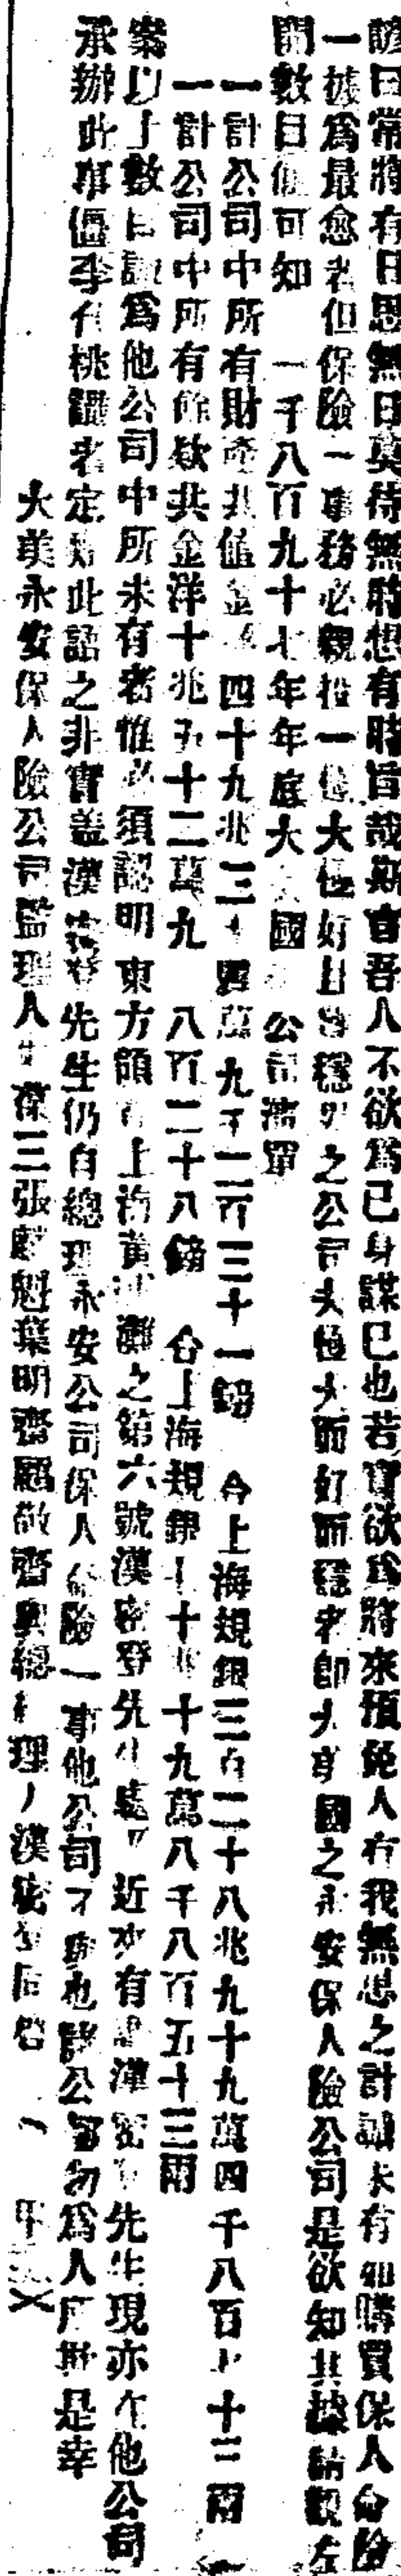 諺曰常將有日思無日莫待無時想有時旨哉斯言吾人不欲爲己身謀已也若實欲爲將來預免人有我無思之計誠未有如購買保人命險
一據爲最愈者但保險一事務必親投一 大極好且 穩 之公司夫極大而好而穩者即大美國之永安保人險公司是欲知其據請觀左
開數目便可知 一千八百九十七年年底大 國 公司清單
一計公司中所有財產共値金 四十九兆三十四萬九千二百三十一鎊 合上海規銀三百二十八兆九十九萬四千八百 十三兩
一計公司中所有餘欵共金洋十兆五十二萬九 八百二十八鎊 合上海規銀 十兆 十九萬八千八百五十三兩
案以上數目誠爲他公司中所未有者惟必須認明東方領 上海黃浦灘之第六號漢密登先生處 近來有 漢密 先生現亦在他公司
承辦此事僵李代桃謂者定 此話之非實蓋漢密登先生仍自總理永安公司保人命險一事他公司不與也諸公幸勿爲人所欺是幸
大美永安保人險公司監理人 葆三張麟魁葉明齋顧敬齋與總 理人漢密登同啓